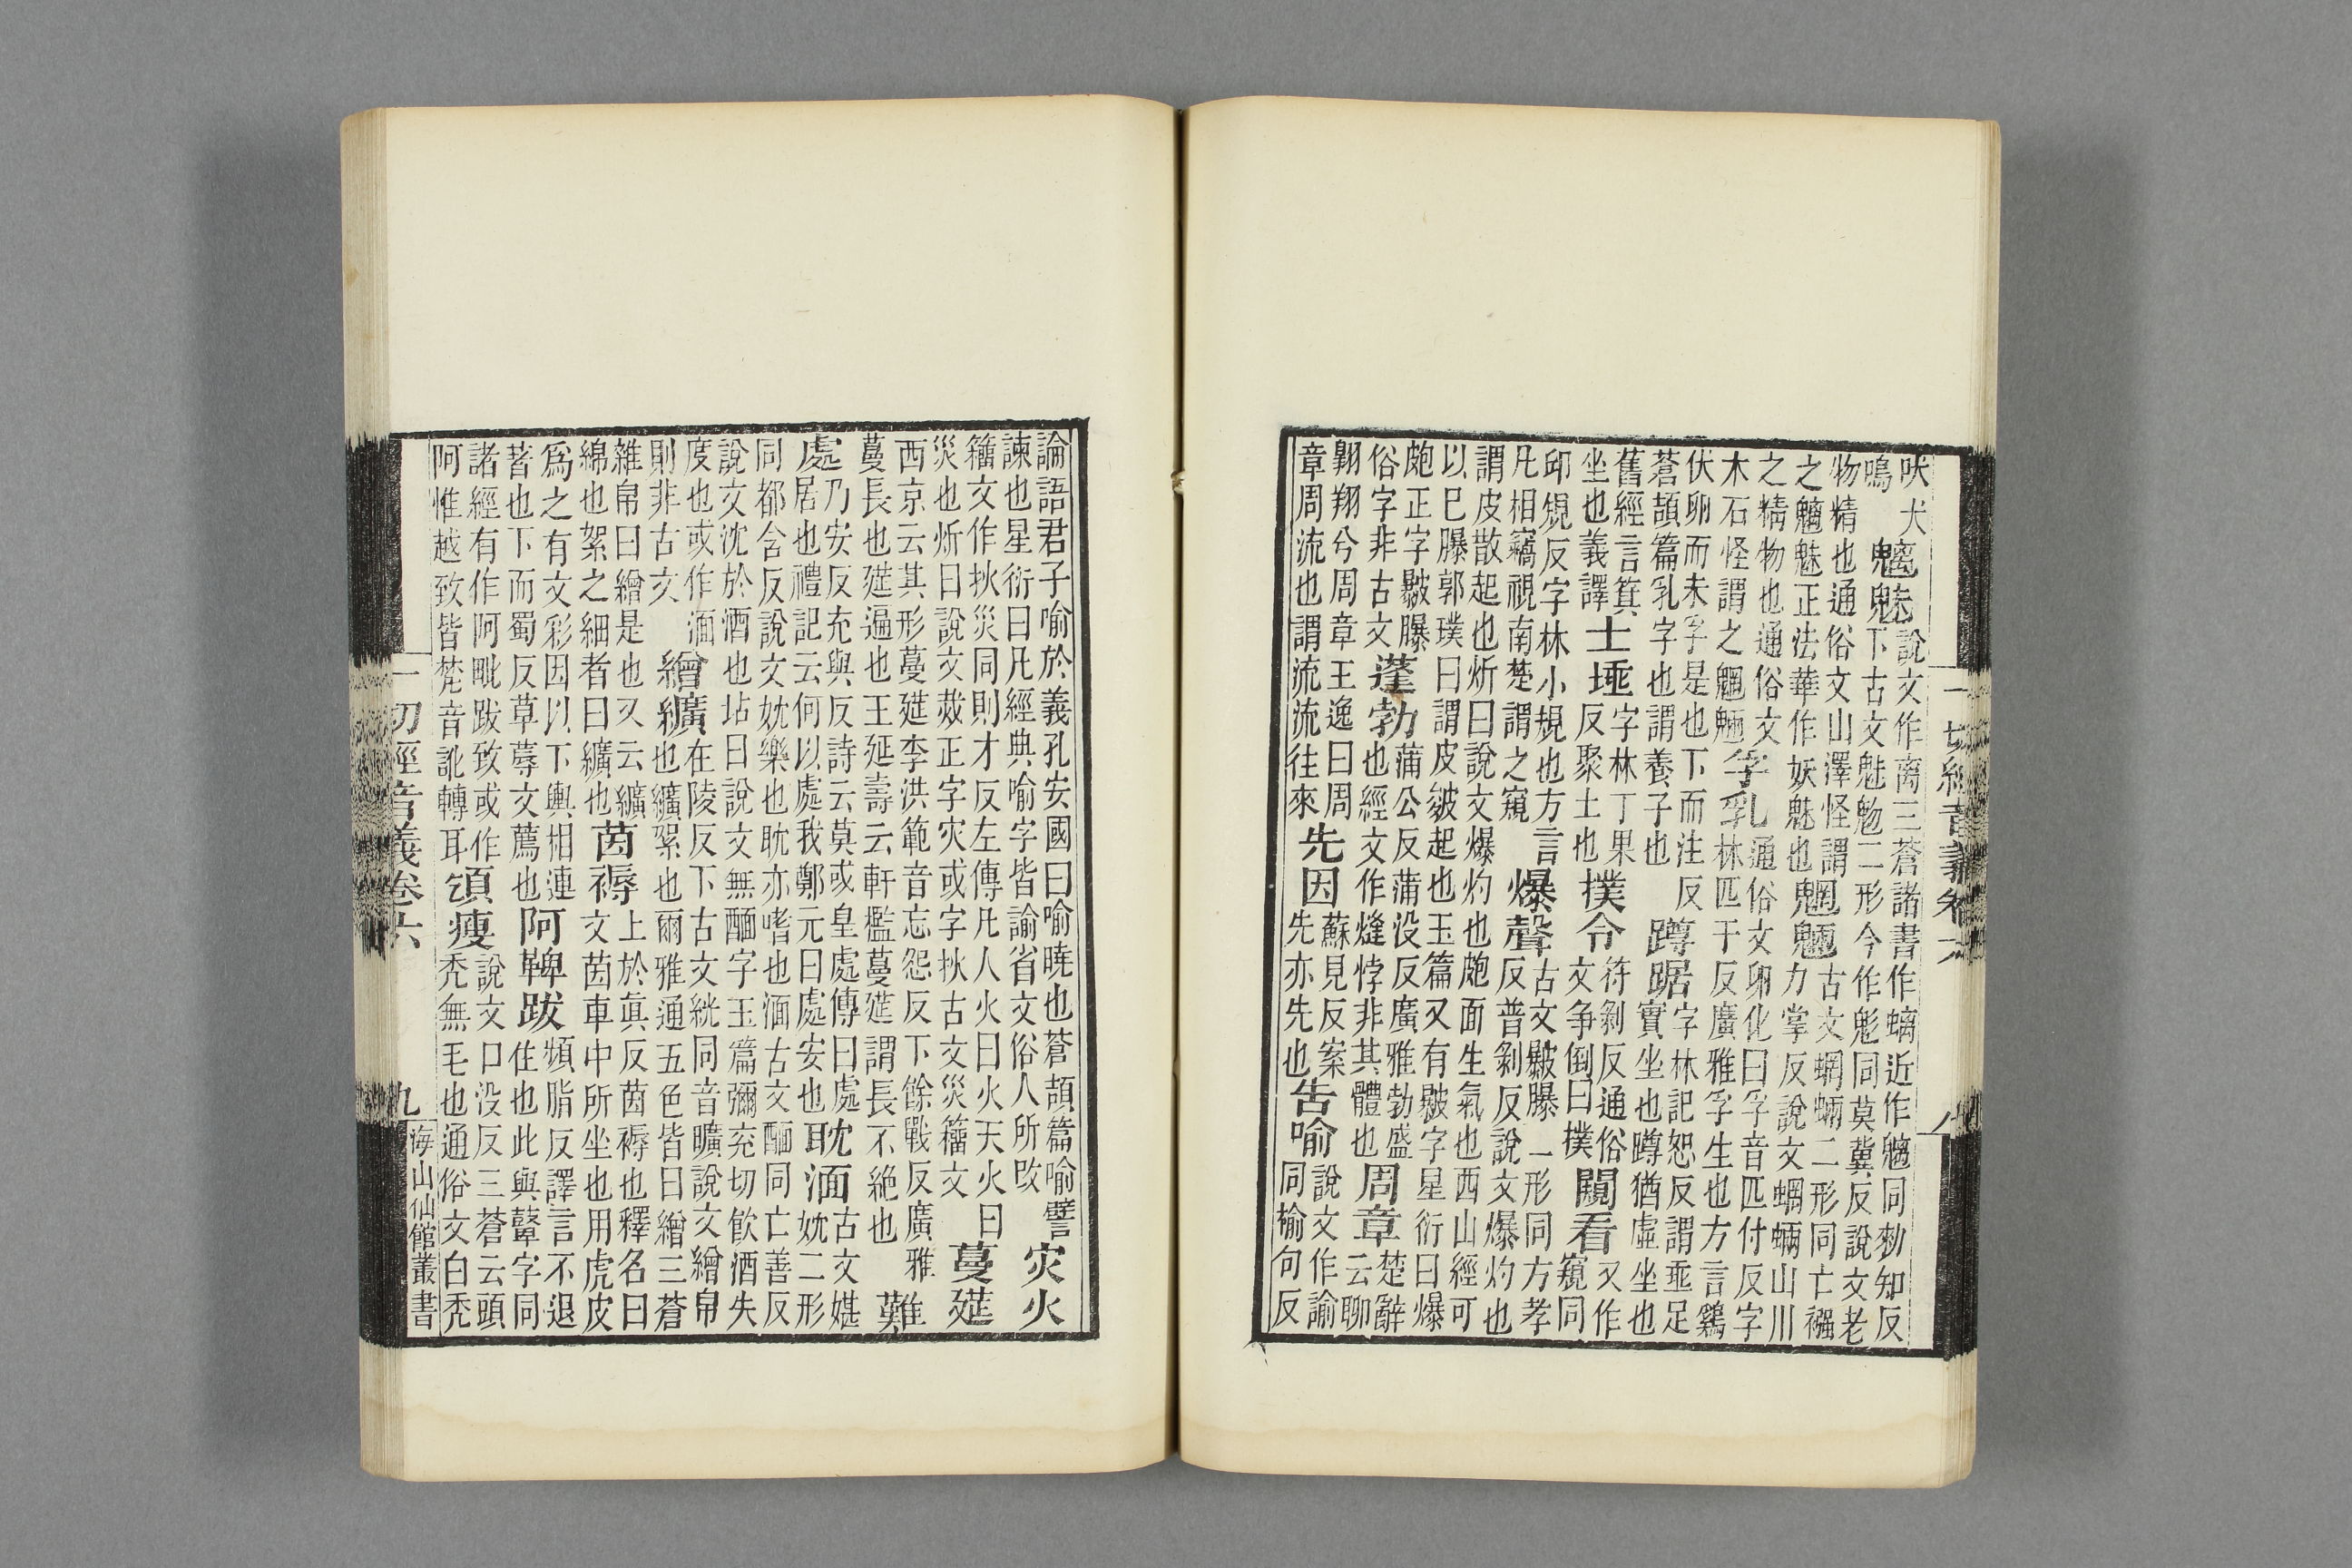 吠犬鳴魑魅說文作离三蒼諸書作螭近作魑同勑知反下古文鬽魅二形今作鬽同莫冀反說文老
物精也通俗文山澤怪謂之魑魅正法華作妖魅也魍魎古文蝄蜽二形同亡襁力掌反說文蝄蜽山川
之精物也通俗文木石怪謂之魍魎孚乳通俗文卵化曰孚音匹付反字林匹于反廣雅孚生也方言鷄
伏卵而未孚是也下而注反蒼頡篇乳字也謂養子也蹲踞字林記恕反謂垂足實坐也蹲猶虛坐也
舊經言箕坐也義譯土埵字林丁果反聚土也撲令符剝反通俗文争倒曰撲闚看又作窺同
卭規反字林小規也方言凡相竊視南楚謂之窺爆聲古文㿺㬥一形同方孝反普剝反說文爆灼也
謂皮散起也炘曰說文爆灼也皰面生氣也西山經可以已㬥郭璞曰謂皮皴起也玉篇又有㿺字星衍曰爆
皰正字㿺㬥俗字非古文蓬勃蒲公反蒲没反廣雅勃盛也經文作㷯悖非其體也周章楚辭云聊
翺翔兮周章王逸曰周章周流也謂流流往來先因蘇見反案先亦先也告喻說文作諭同榆句反
一切經音義卷六 八
論語君子喻於義孔安國曰喻曉也蒼頡篇喻譬諫也星衍曰凡經典喻字皆諭省文俗人所改灾火
籒文作扷災同則才反左傳凡人火曰火天火曰災也炘曰說文烖正字灾或字扷古文災籒文蔓莚
西京云其形蔓莚李洪範音忘怨反下餘戰反廣雅蔓長也莚遍也王延壽云軒檻蔓莚謂長不絶也難
處乃安反充與反詩云莫或皇處傳曰處居也禮記云何以處我鄭元曰處安也耽湎古文媅妉二形
同都含反說文妉樂也耽亦嗜也湎古文酾同亡善反說文沈於酒也坫曰說文無酾字玉篇彌兖切飲酒失
度也或作湎則非古文繒纊在陵反下古文絖同音曠說文繒帛也纊絮也爾雅通五色皆曰繒三蒼
雜帛曰繒是也又云纊綿也絮之細者曰纊也茵褥上於眞反茵褥也釋名曰文茵車中所坐也用虎皮
爲之有文彩因以下輿相連着也下而蜀反草蓐文薦也阿鞞跋頻脂反譯言不退住也此與鼙字同
諸經有作阿毗跋致或作阿惟越致皆梵音訛轉耳頒瘦說文口没反三蒼云頭秃無毛也通俗文白秃
一切經音義卷六 九 海山仙館叢書